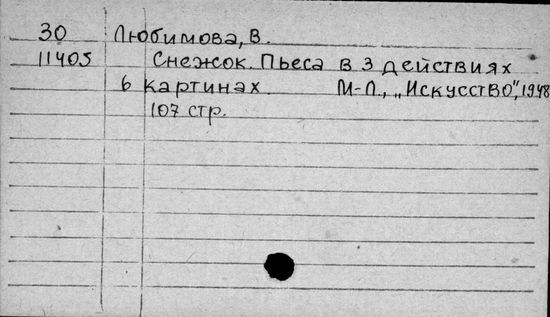 30 Любимова, В.
11405 Снежок. Пьеса в 3 действиях
6 картинах М-Л., „Искусство", 1948
107 стр.